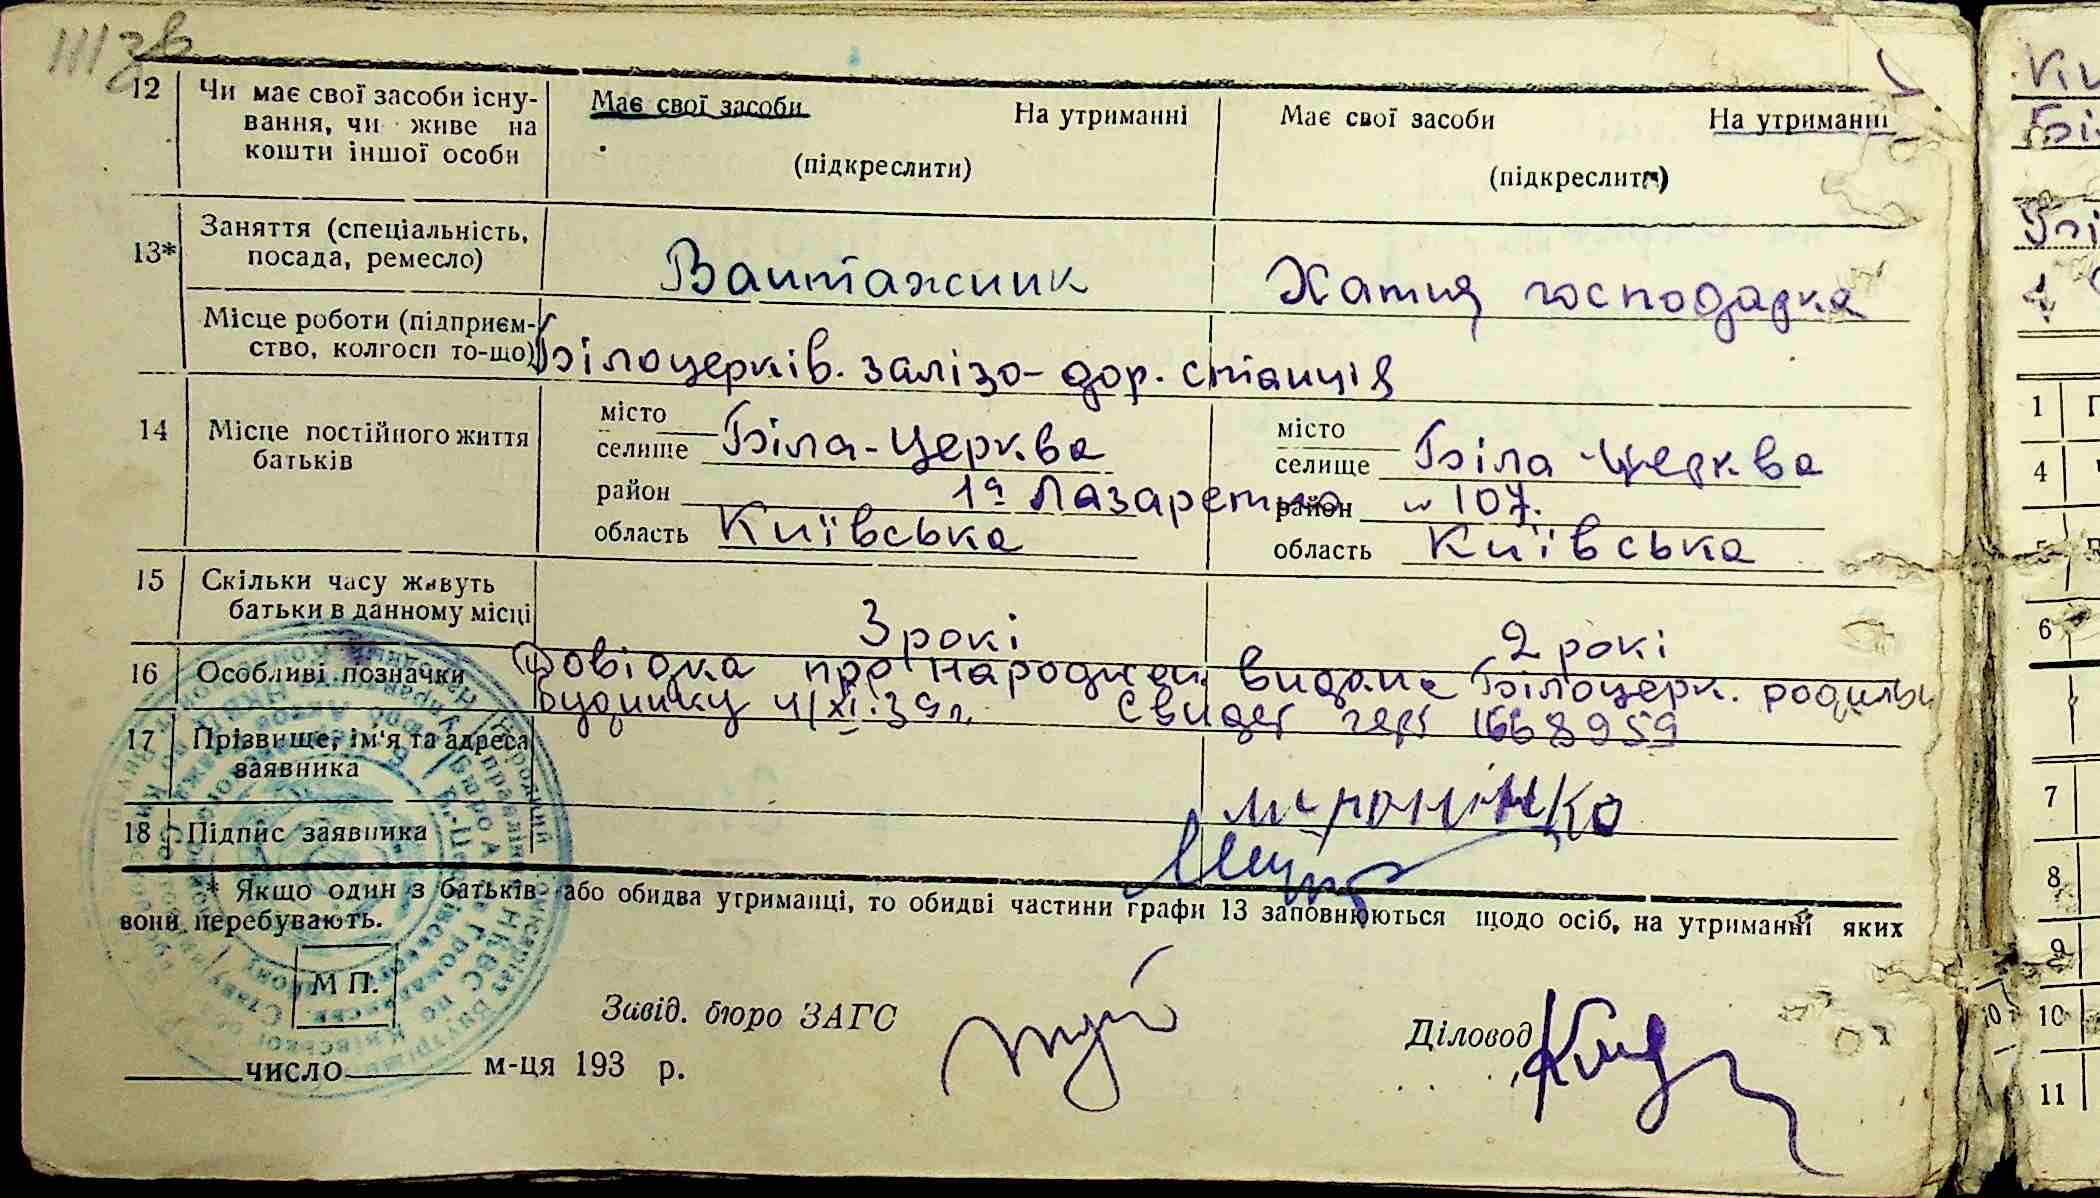 12 Чи має свої засоби існу- Має свої засоби На утриманні Має свої засоби На утриманні
вання, чи живе на
кошти іншої особи (підкреслити) (підкреслити)
13* Заняття (спеціальність,
посада, ремесло) Вантажник Хатня господарка
Місце роботи (підприєм-
ство, колгосп то-що) Білоцерків. залізо-дор. станція
14 Місце постійного життя місто місто
батьків селище Біла-Церква селище Біла Церква
район 1а Лазаретна район № 107.
область Київська область Київська
15 Скільки часу живуть
батьки в данному місці 3 рокі 2 рокі
16 Особливі позначки Довідка про народжен. видана Білоцерк. родильн
будинку 4/XI.39 г. 1668959
17 Прізвище, ім'я та адреса
заявника
18 Підпис заявника
* Якщо один з батьків або обидва утриманці, то обидві частини графи 13 заповнюються щодо осіб, на утриманні яких
вони перебувають.
М П.
Завід. бюро ЗАГС Діловод
число м-ця 193 р.
1
4
6
7
8
9
10
11